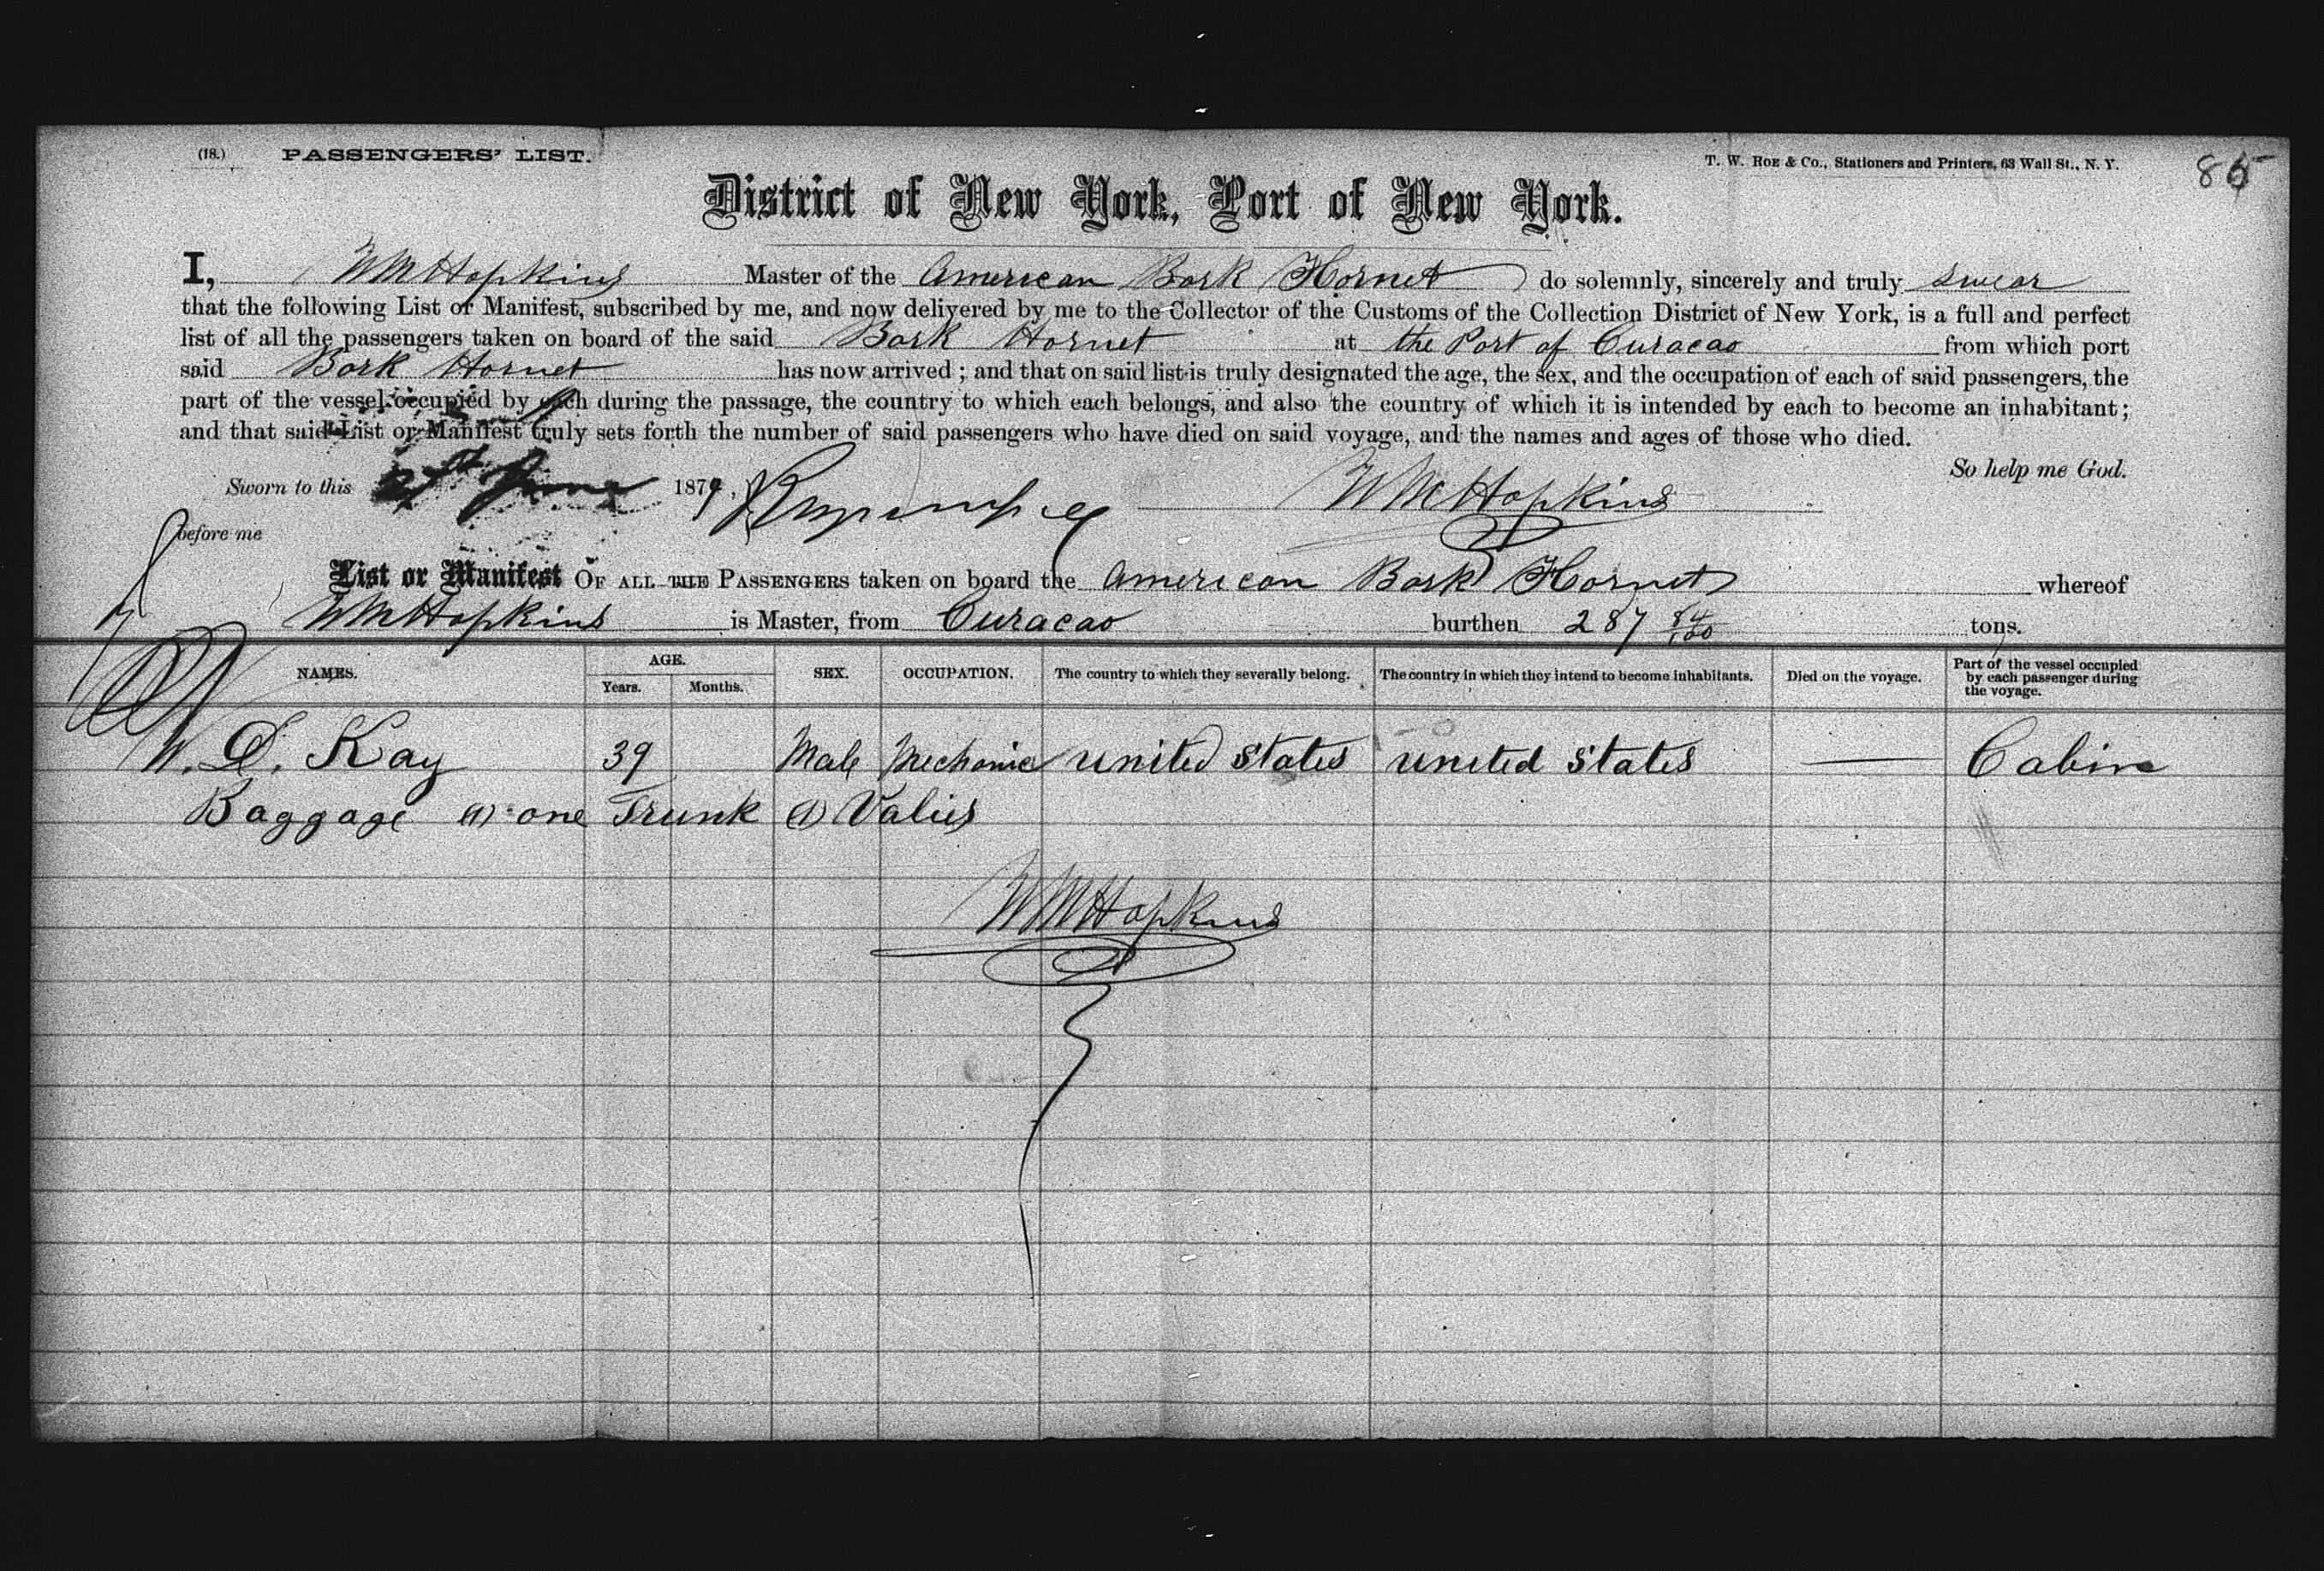 (18.) PASSENGERS' LIST.
T. W. ROE & Co., Stationers and Printers, 63 Wall St., N. Y.
District of New York, Port of New York.
I, WM Hopkins Master of the American Bark Hornet do solemnly, sincerely and truly swear
that the following List or Manifest, subscribed by me, and now delivered by me to the Collector of the Customs of the Collection District of New York, is a full and perfect
list of all the passengers taken on board of the said Bark Hornet at the Port of Curacao from which port
said Bark Hornet has now arrived ; and that on said list is truly designated the age, the sex, and the occupation of each of said passengers, the
part of the vessel occupied by each during the passage, the country to which each belongs, and also the country of which it is intended by each to become an inhabitant ;
and that said List or Manifest truly sets forth the number of said passengers who have died on said voyage, and the names and ages of those who died.
So help me God.
Sworn to this June 1879, WM Hopkins
before me
List or Manifest OF ALL THE PASSENGERS taken on board the American Bark Hornet whereof
WM Hopkins is Master, from Curacao burthen 287 84/100 tons.
NAMES. AGE. Years. Months. SEX. OCCUPATION. The country to which they severally belong. The country in which they intend to become inhabitants. Died on the voyage. Part of the vessel occupied by each passenger during the voyage.
W. D. Kay 39 Male Mechanic United States United States — Cabin
Baggage (1) one Trunk (1) Valies
WM Hopkins